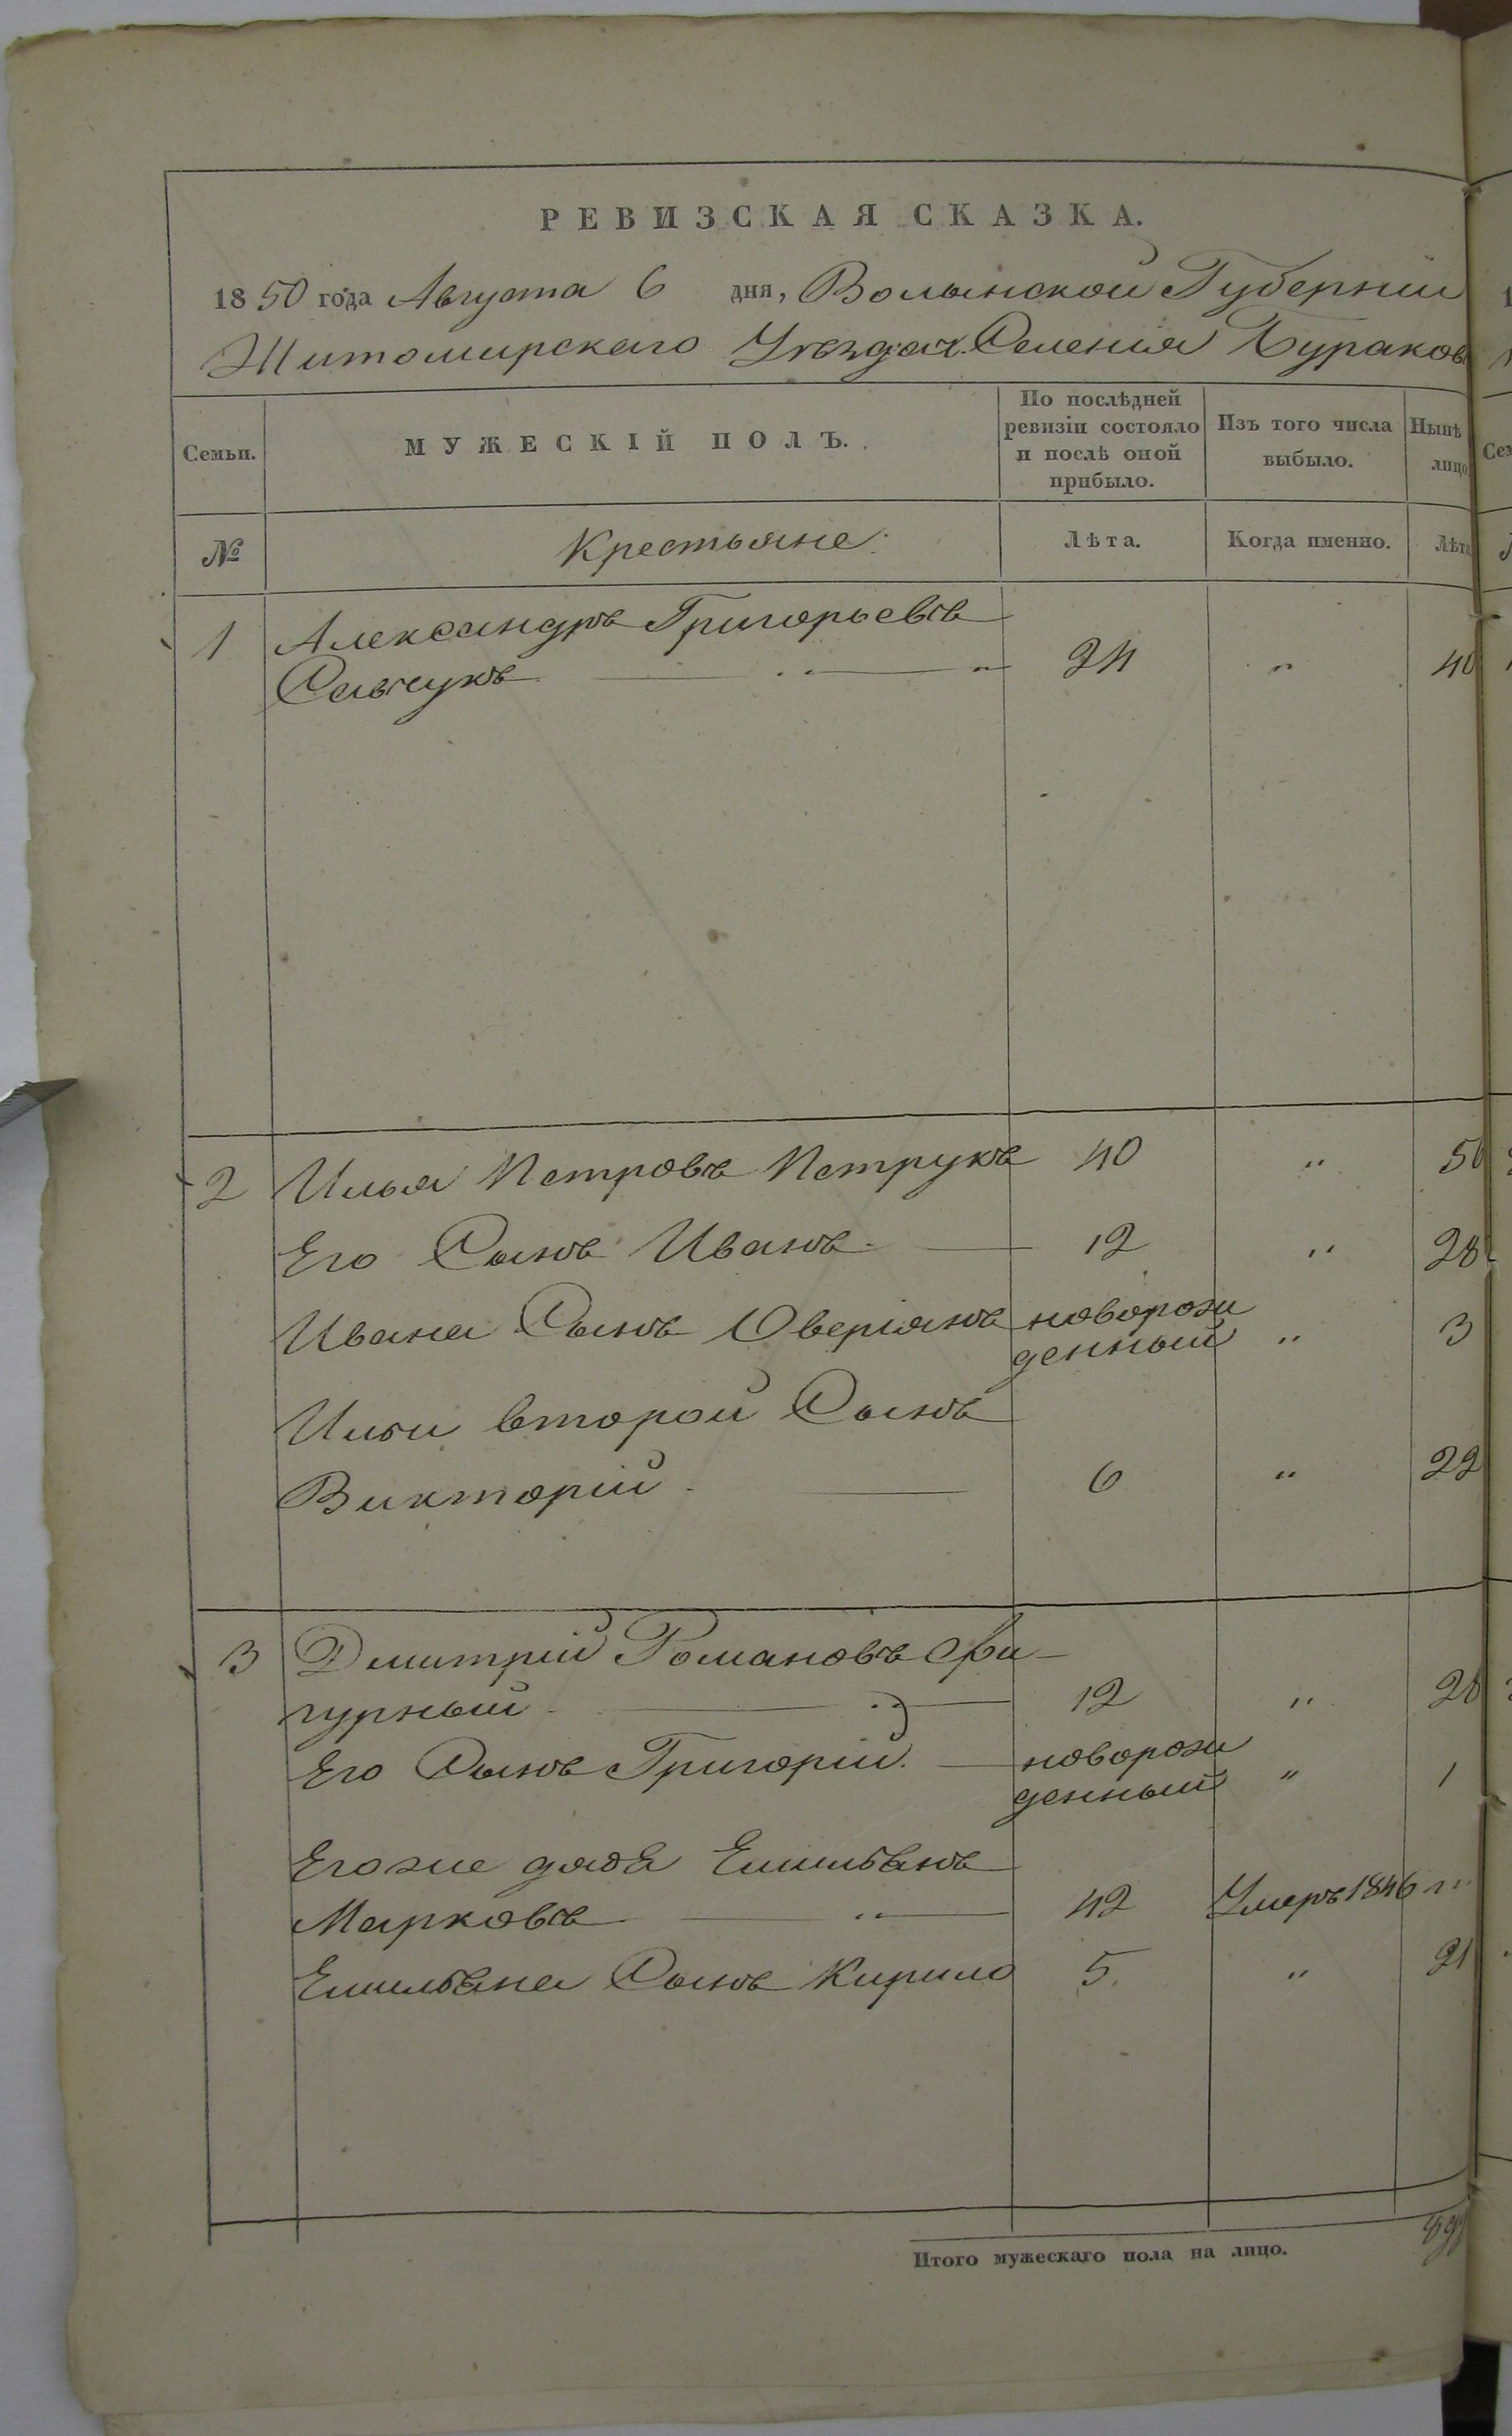 РЕВИЗСКАЯ СКАЗКА.
1850 года Августа 6 дня, Волынской Губерніи
Житомирскаго Уѣзда Селенія Бураков
Семьи. МУЖЕСКІЙ ПОЛЪ. По послѣдней ревизіи состояло и послѣ оной прибыло. Изъ того числа выбыло. Нынѣ лицо
№ Крестьяне. Лѣта. Когда именно. Лѣта
1 Александръ Григорьевъ
Савчукъ " 24 " 40
2 Илья Петровъ Петрукъ 40 " 56
Его Сынъ Иванъ 12 " 28
Ивана Сынъ Оверіянъ новорож
денный " 3
Ильи второй Сынъ
Викторій 6 " 22
3 Дмитрій Романовъ Фи-
гурный " 12 " 28
Его Сынъ Григорій новорож
денный " 1
Егоже дядя Емильянъ
Марковъ " 42 Умеръ 1846 "
Емильяна Сынъ Кирило 5 " 21
Итого мужескаго пола на лицо.